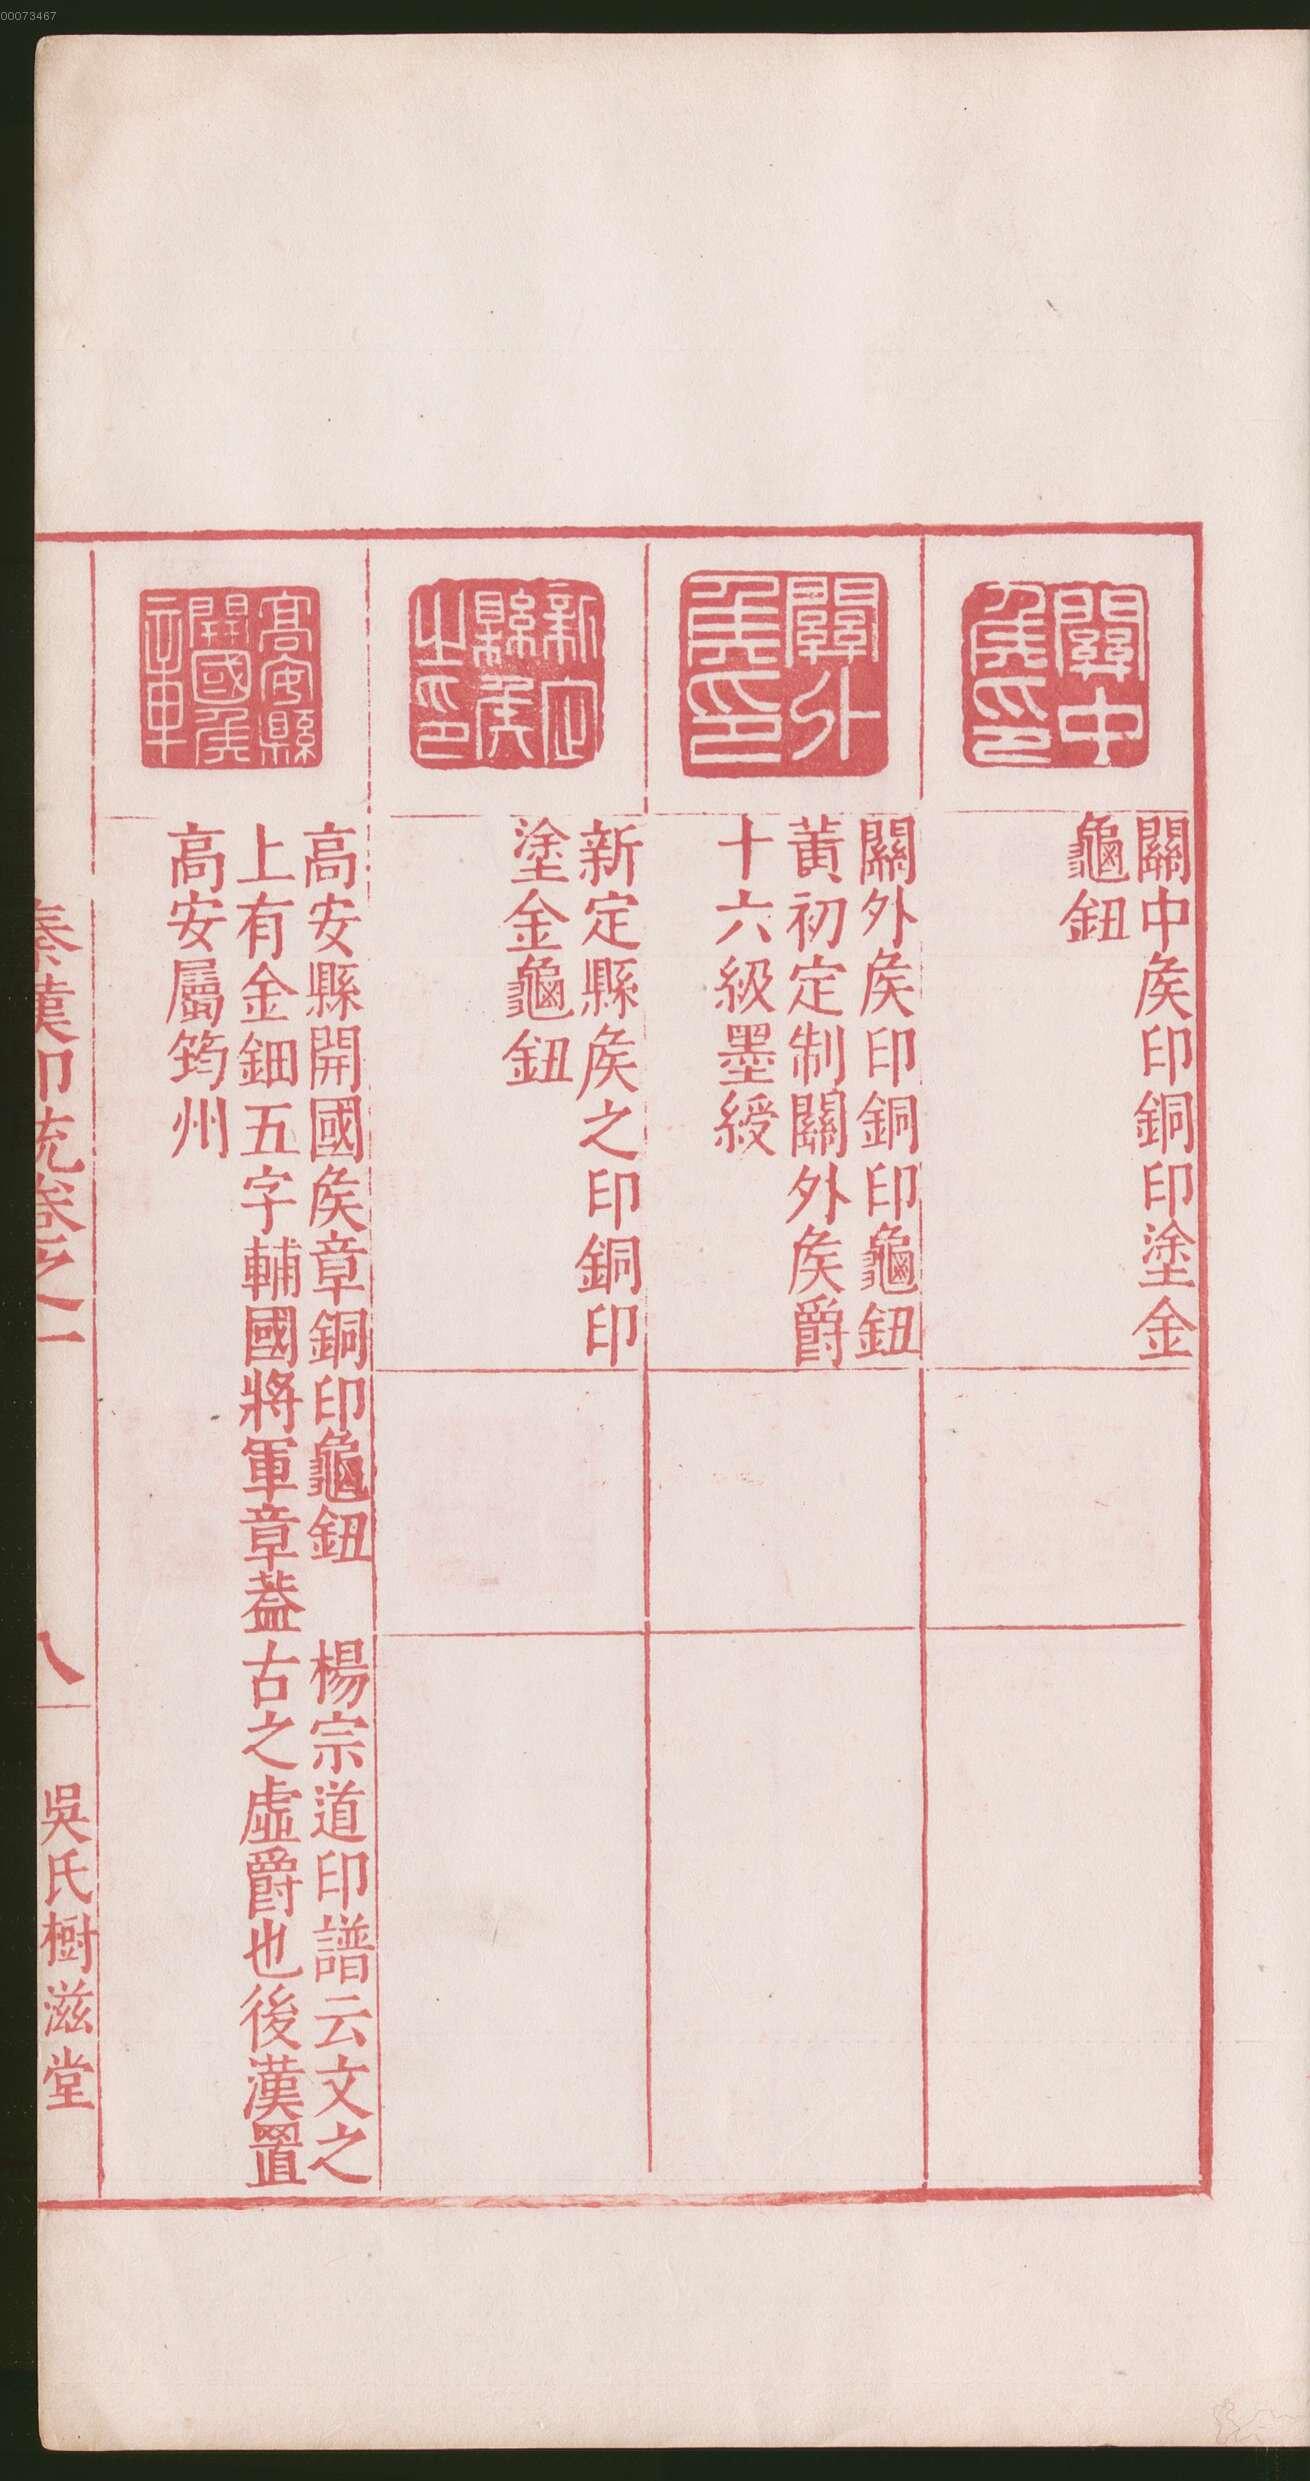 00073467
關中
矦印
關中矦印銅印塗金
龜鈕
關外
矦印
關外矦印銅印龜鈕
黃初定制關外矦爵
十六級墨綬
新定
縣矦
之印
新定縣矦之印銅印
塗金龜鈕
高安縣
開國矦
章
高安縣開國矦章銅印龜鈕 楊宗道印譜云文之
上有金鈿五字輔國將軍章葢古之虛爵也後漢置
高安屬筠州
秦漢印統卷之一
八
吳氏樹滋堂